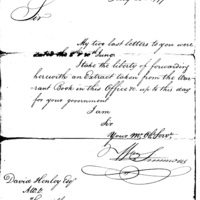 Sir
My two last letters to you were
dated the 8 & 10th June
I take the liberty of forwarding
herewith an Extract taken from the War-
rant Book in this Office &c. up to this day
for your government
I am
Sir
Your Mo. Ob. Serv.
Wm Simmons
David Henley Esqr